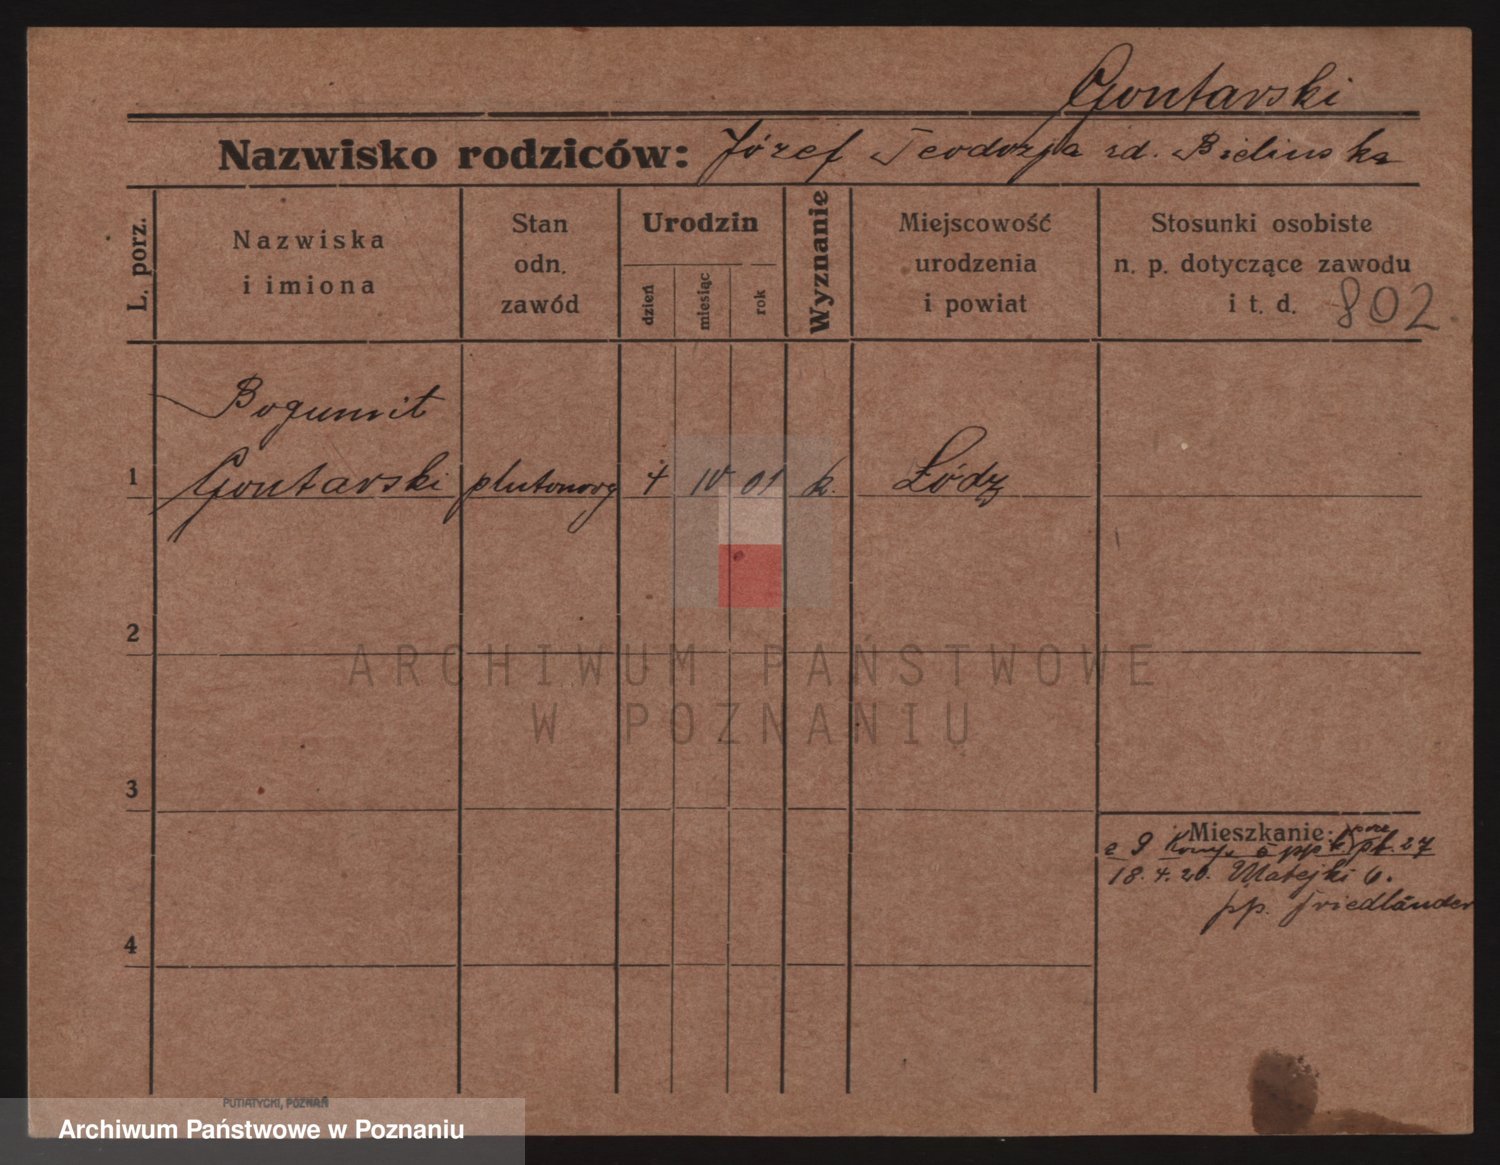 Gontarski
Nazwisko rodziców: Józef Teodozja zd. Bielinska
L. porz.
Nazwiska
i imiona
Stan
odn.
zawód
Urodzin
dzień
miesiąc
rok
Wyznanie
Miejscowość
urodzenia
i powiat
Stosunki osobiste
n. p. dotyczące zawodu
i t. d. 802
Bogumił
1 Gontarski plutonowy 4 IV 01 k. Łódz
2
3
4
Mieszkanie:
z 9 Komp. 6 pp. 27
18.4.20. Matejki 6.
pp. Friedländer
ARCHIWUM PAŃSTWOWE
W POZNANIU
PUTIATYCKI, POZNAŃ
Archiwum Państwowe w Poznaniu